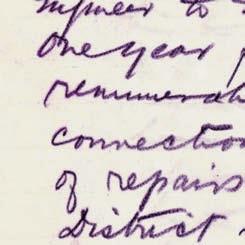 to
One year
remunerati
connection
of repairs
District